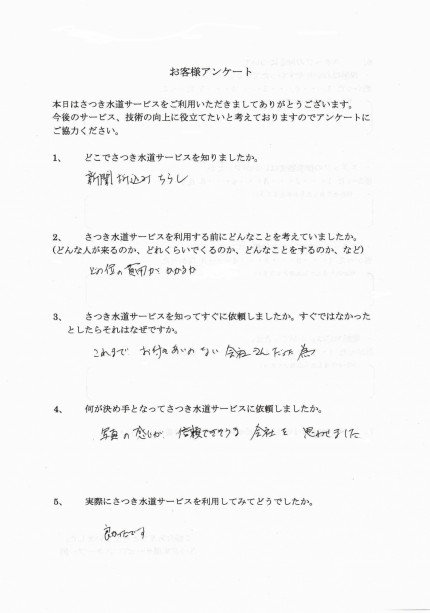 お客様アンケート
本日はさつき水道サービスをご利用いただきましてありがとうございます。
今後のサービス、技術の向上に役立てたいと考えておりますのでアンケートに
ご協力ください。
1、 どこでさつき水道サービスを知りましたか。
新聞折込みちらし
2、 さつき水道サービスを利用する前にどんなことを考えていましたか。
(どんな人が来るのか、どれくらいでくるのか、どんなことをするのか、など)
どの位の費用がかかるか
3、 さつき水道サービスを知ってすぐに依頼しましたか。すぐではなかった
としたらそれはなぜですか。
これまで お付きあいのない 会社さんだった為
4、 何が決め手となってさつき水道サービスに依頼しましたか。
写真の感じが、信頼できそうな 会社を 思わせました
5、 実際にさつき水道サービスを利用してみてどうでしたか。
良かったです